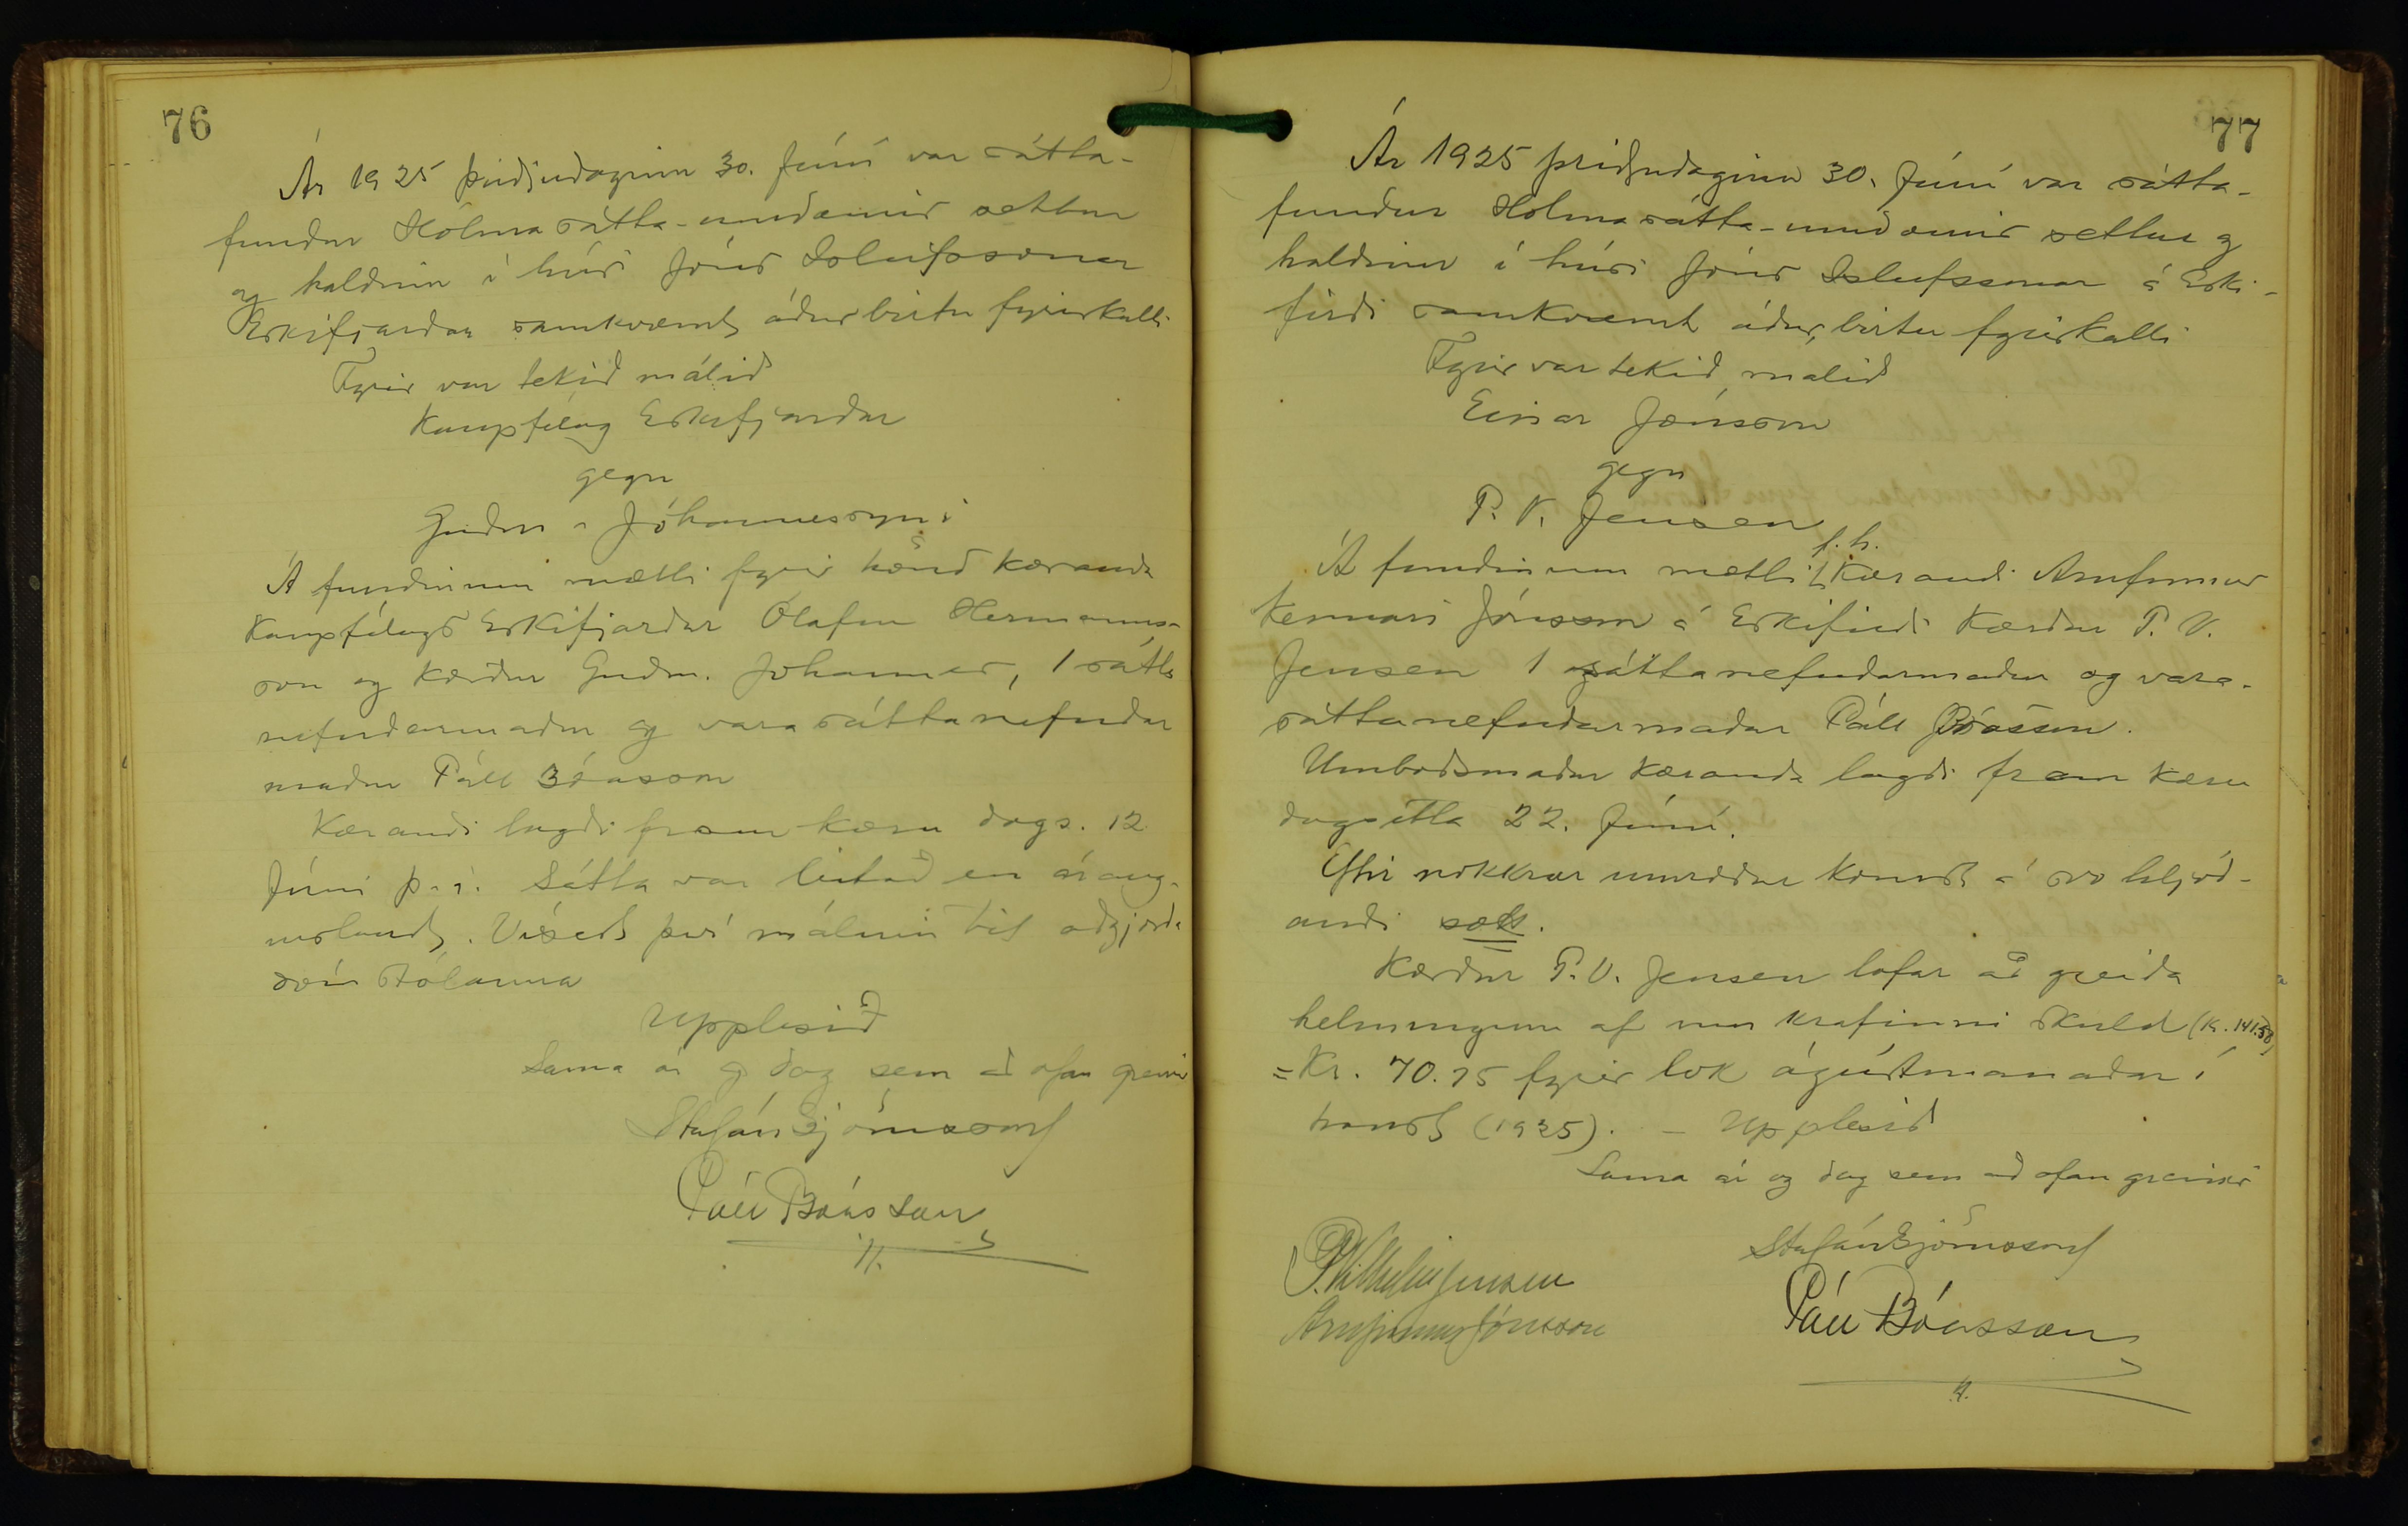 76
Ár 1925 þriðjudaginn 30. Júní var sátta-
fundur Hólmasátta-umdæmis settur
og haldinn í húsi Jóns Ísleifssonar
Eskifjarðar samkvæmt áður birtu fyrirkalli
Fyrir var tekið málið
Kaupfélag Eskifjarðar
gegn
Guðm. Jóhannessyni
Á fundinum mætti fyrir hönd kæranda
Kaupfélags Eskifjarðar Ólafur Hermanns-
son og kærður Guðm. Jóhannes, 1 sátta
nefndarmaður og varasáttanefndar
maður Páll Bóasson
Kærandi lagði fram kæru dags. 12
Júní þ.á. Sátta var leitað en árang-
urslaust. Vísast því málinu til aðgjörða
dómstólanna
Upplesið
Sama ár og dag sem að ofan greinir
Stefán Björnsson
Páll Bóasson
77
Ár 1925 þriðjudaginn 30. Júní var sátta-
fundur Hólmasátta-umdæmis settur og
haldinn í húsi Jóns Ísleifssonar á Eski-
firði samkvæmt áður birtu fyrirkalli
Fyrir var tekið málið
Einar Jónsson
gegn
P. V. Jensen
f. h.
Á fundinum mætti kærandi Arnfinnur
kennari Jónsson á Eskifirði kærður P. V.
Jensen 1 sáttanefndarmaður og vara-
sáttanefndarmaður Páll Bóasson.
Umboðsmaður kæranda lagði fram kæru
dagsetta 22. Júní.
Eftir nokkrar umræður komst á svo hljóð-
andi sætt.
Kærður P. V. Jensen lofar að greiða
helminginn af um krafinni skuld (Kr. 141.50)
= Kr. 70.75 fyrir lok ágústmánaðar í
haust (1925). - Upplesið
Sama ár og dag sem að ofan greinir
Stefán Björnsson
P. Vilhelm Jensen
Páll Bóasson
Arnfinnur Jónsson